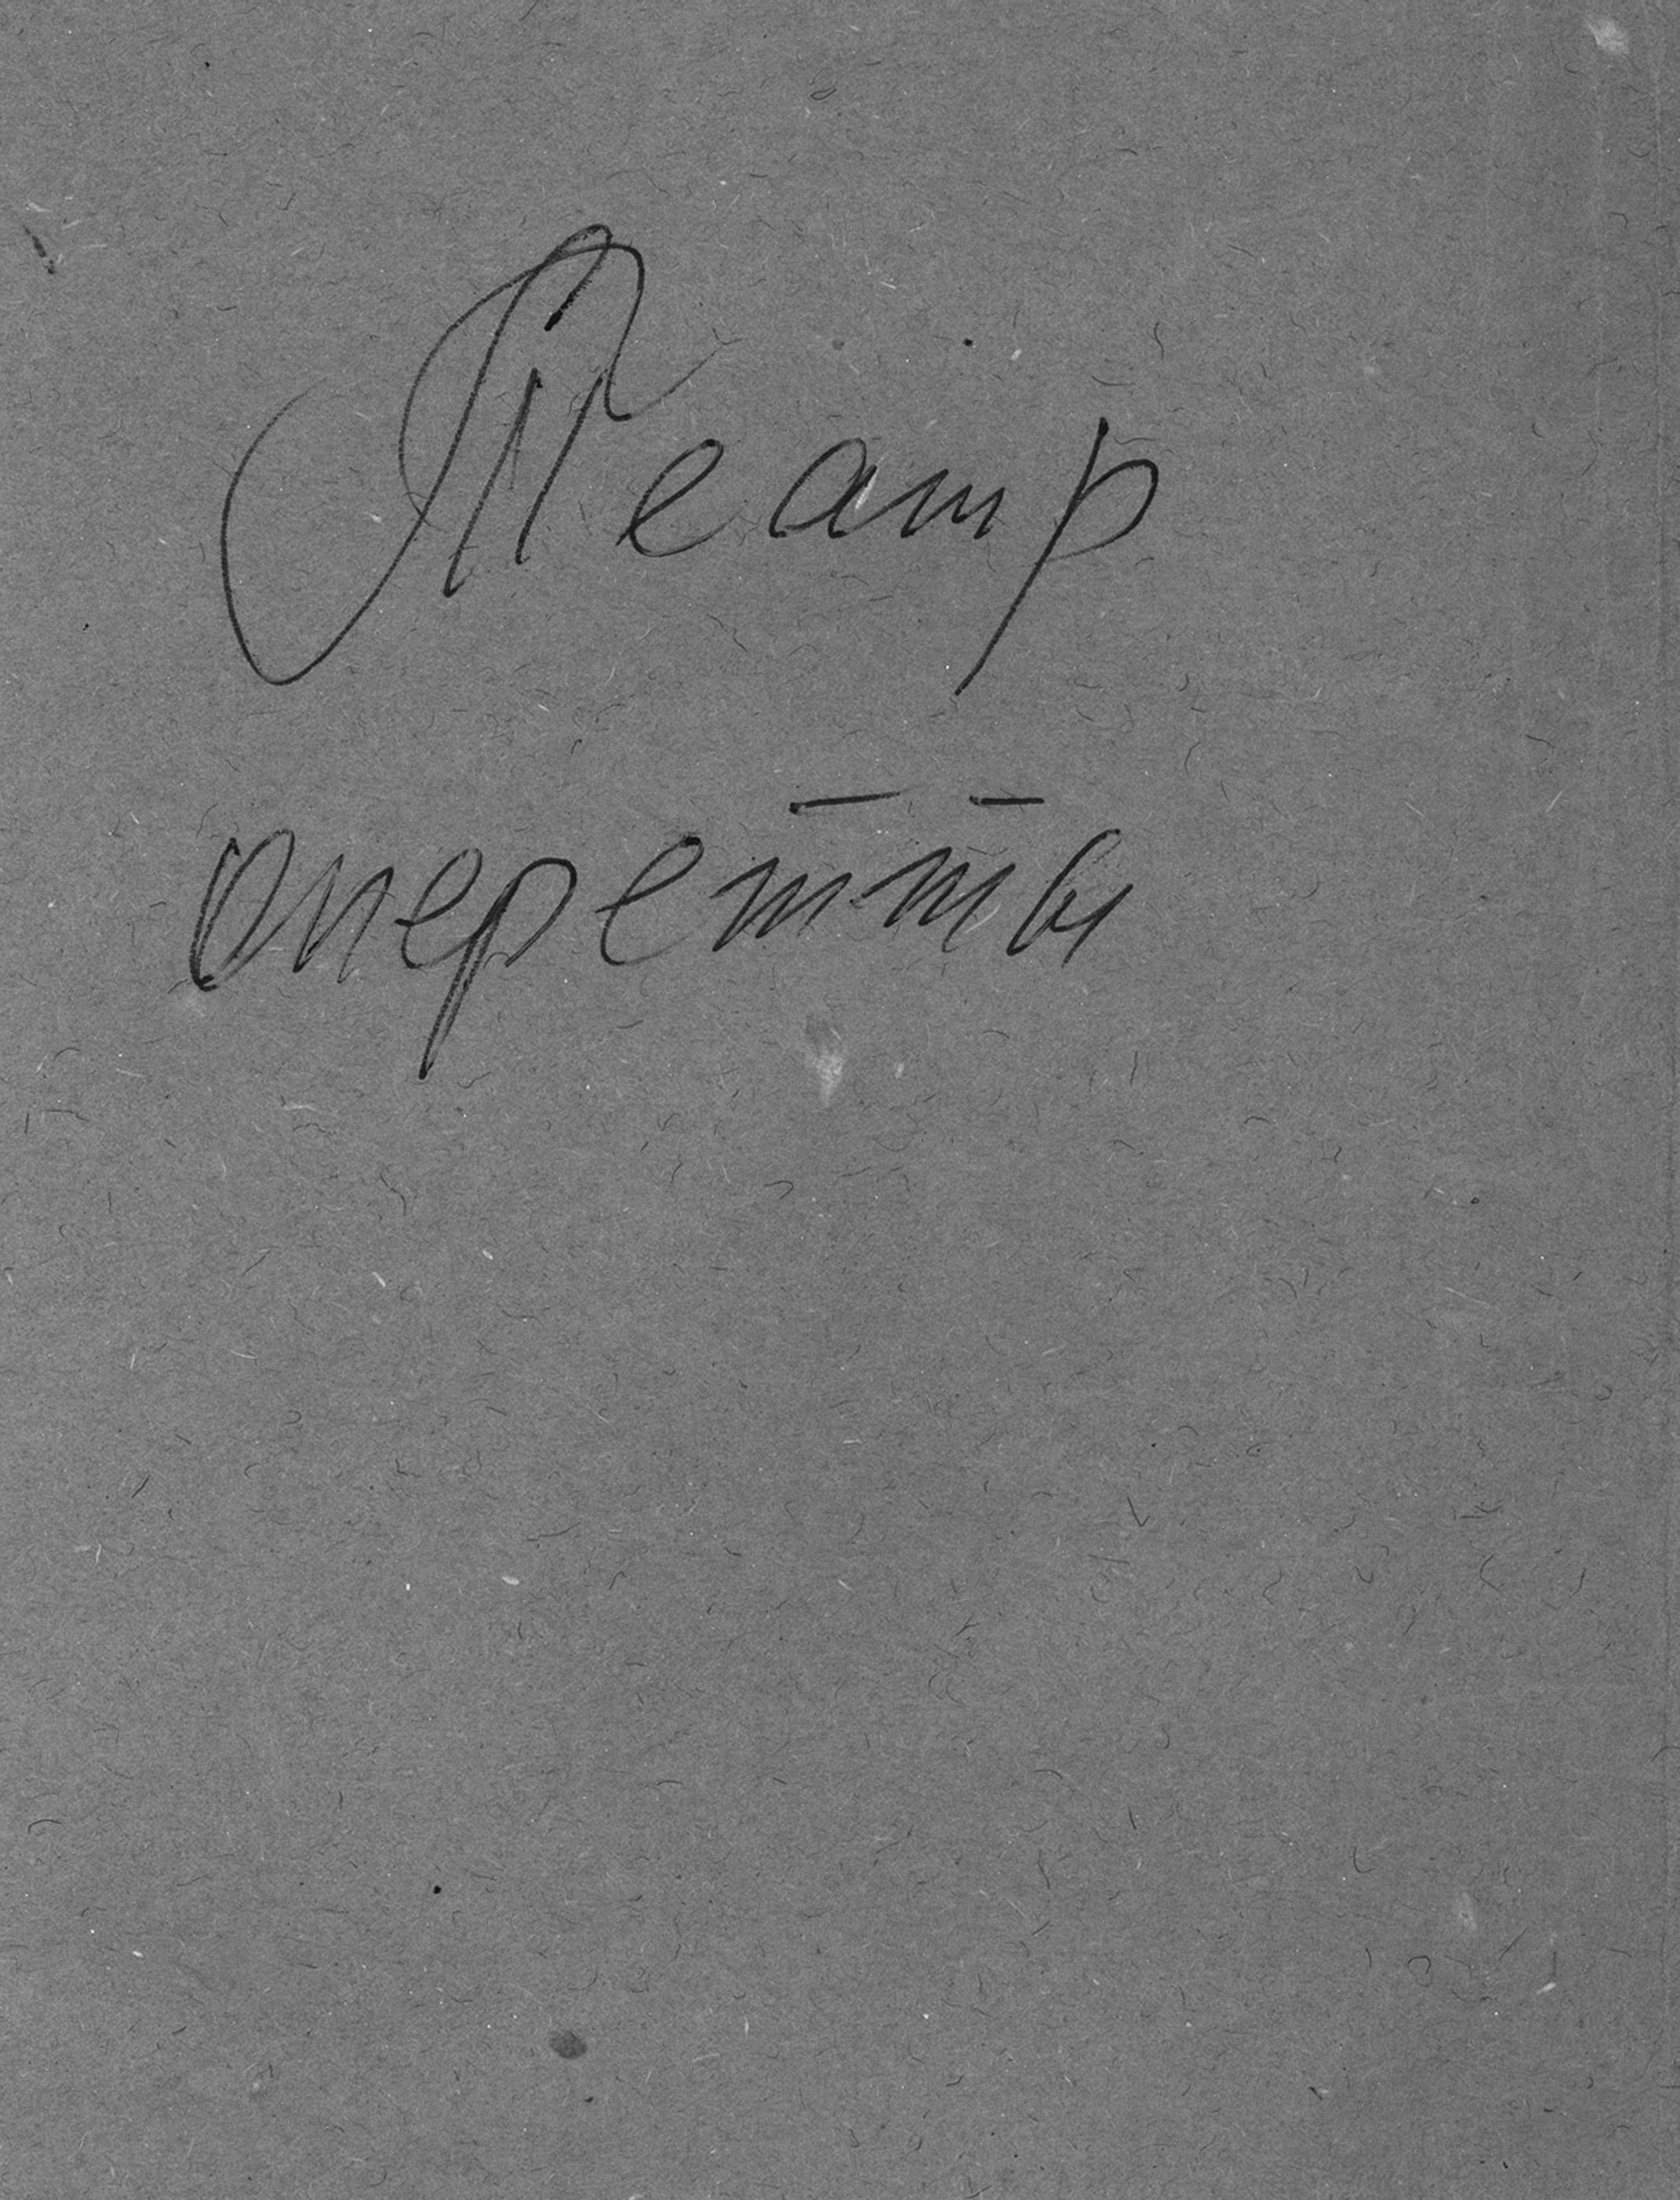 Театр
оперетты